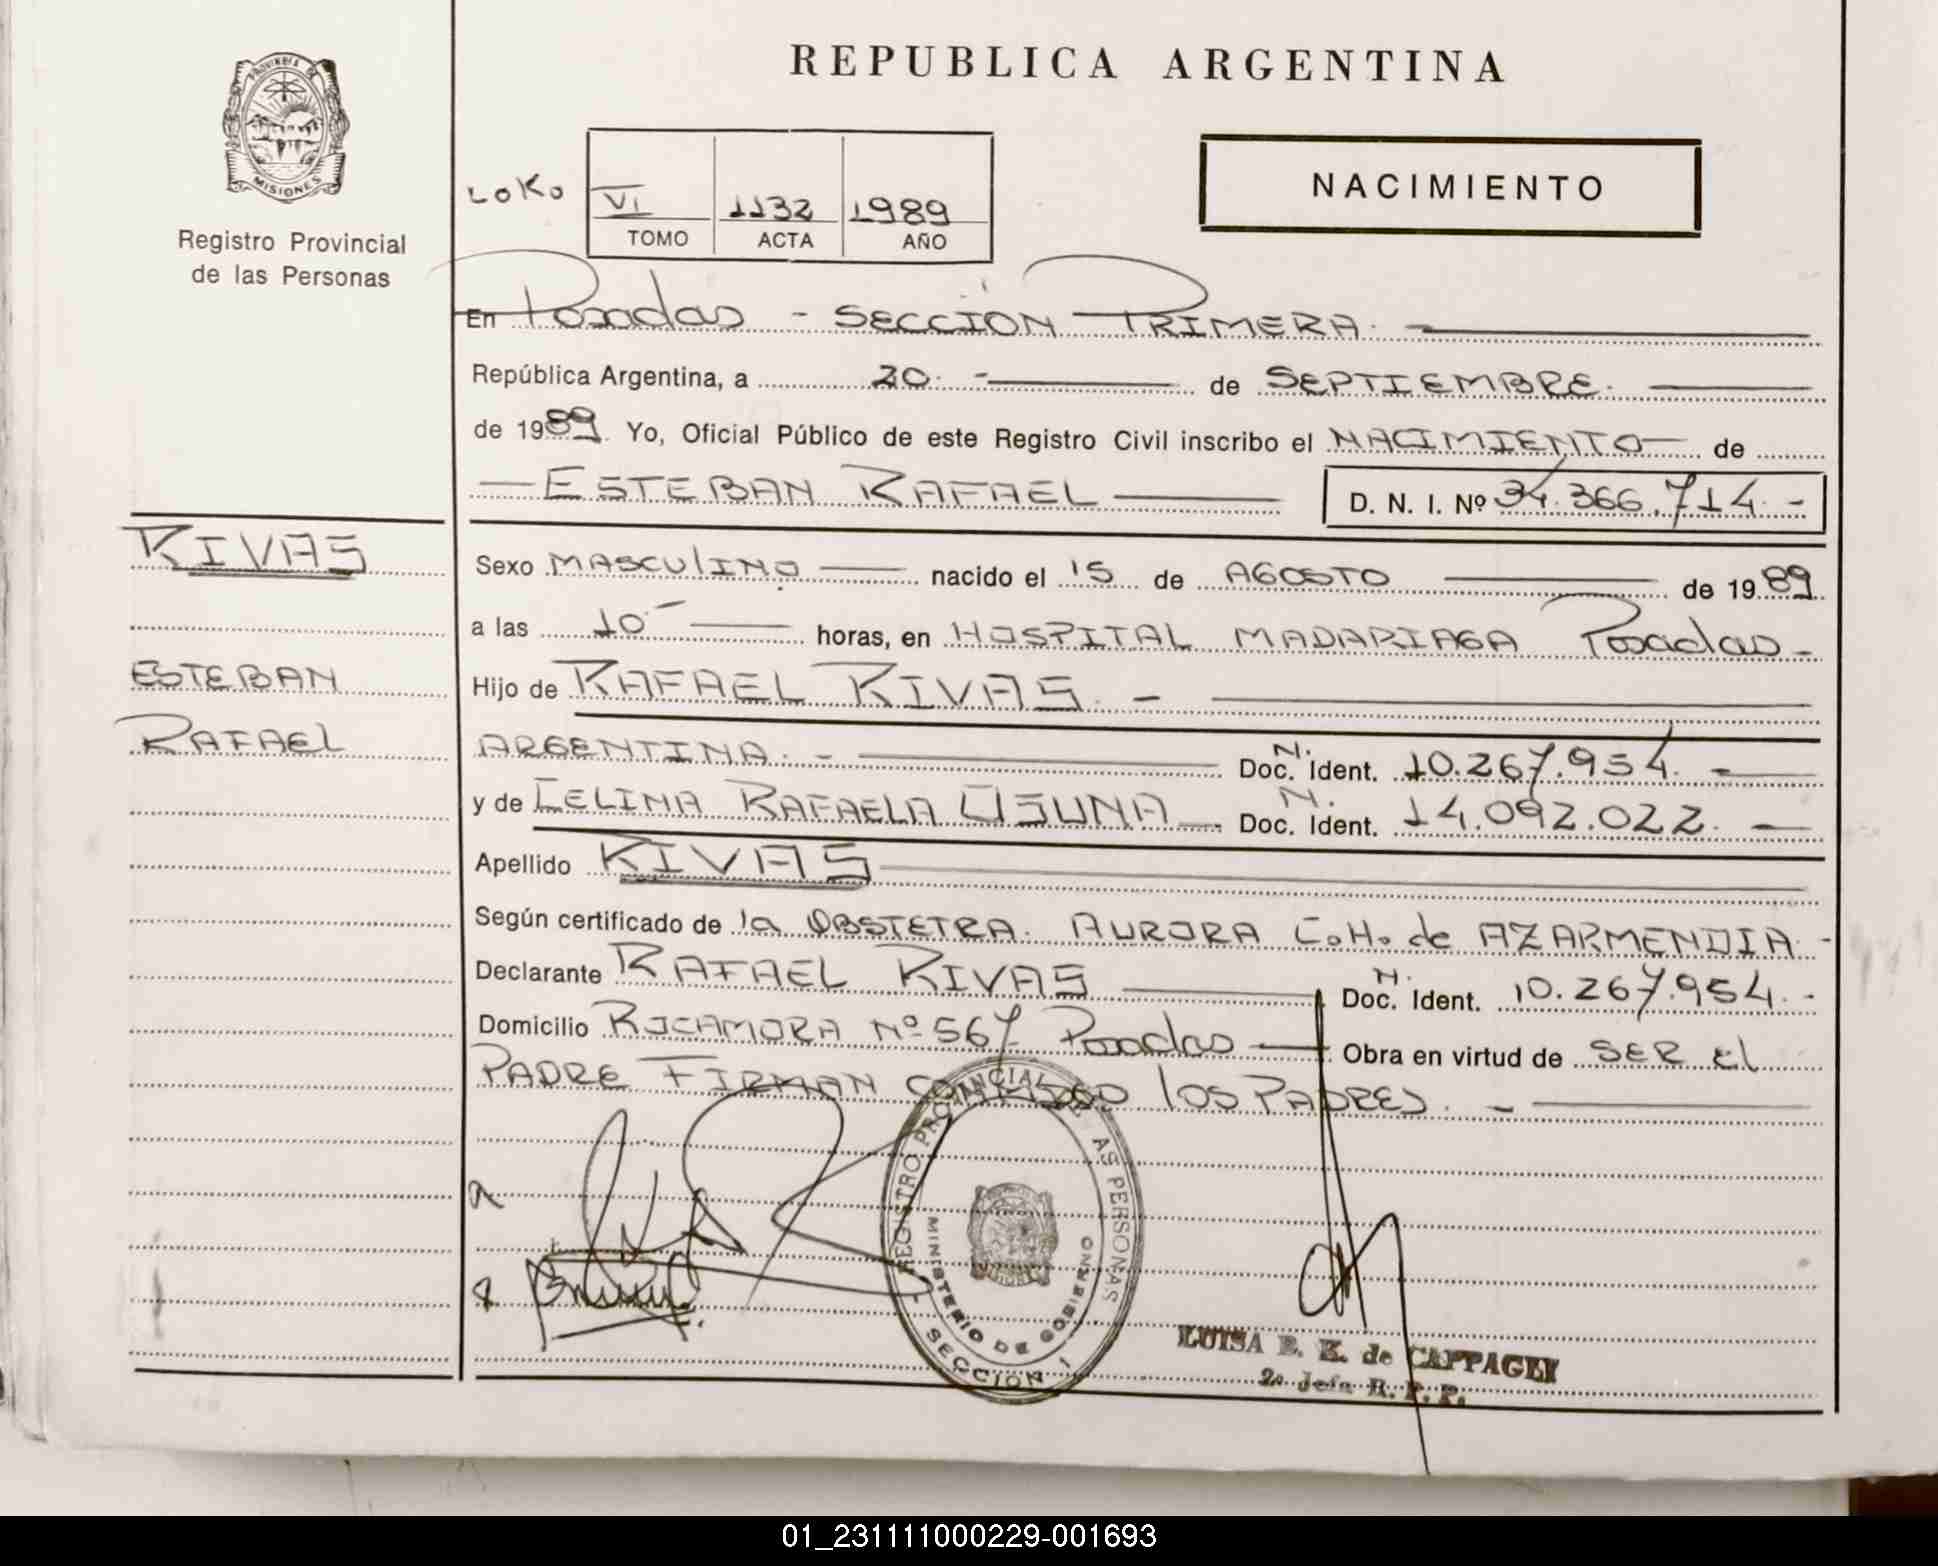 REPUBLICA ARGENTINA
PROVINCIA DE
MISIONES
Registro Provincial
de las Personas
LOKO
VI 1132 1989
TOMO ACTA AÑO
NACIMIENTO
En Posadas - SECCIÓN PRIMERA.
República Argentina, a 20. - de SEPTIEMBRE.
de 1989. Yo, Oficial Público de este Registro Civil inscribo el NACIMIENTO de
ESTEBAN RAFAEL D. N. I. Nº 34.366.714. -
RIVAS
Sexo MASCULINO nacido el 15 de AGOSTO de 1989
a las 10 horas, en HOSPITAL MADARIAGA Posadas -
ESTEBAN
Hijo de RAFAEL RIVAS. -
RAFAEL
ARGENTINA. - Doc. N. Ident. 10.267.954. -
y de CELINA RAFAELA OSUNA Doc. N. Ident. 14.092.022. -
Apellido RIVAS
Según certificado de la OBSTETRA. AURORA C.H. de AZARMENDIA. -
Declarante RAFAEL RIVAS Doc. N. Ident. 10.267.954. -
Domicilio ROCAMORA Nº 567 Posadas Obra en virtud de SER El
PADRE FIRMAN LOS PADRES. -
REGISTRO PROVINCIAL AS PERSONAS
MINISTERIO DE GOBIERNO
SECCION 1
LUISA E. K. de CAPPAGLI
2ª Jefa R. P. P.
01_231111000229-001693